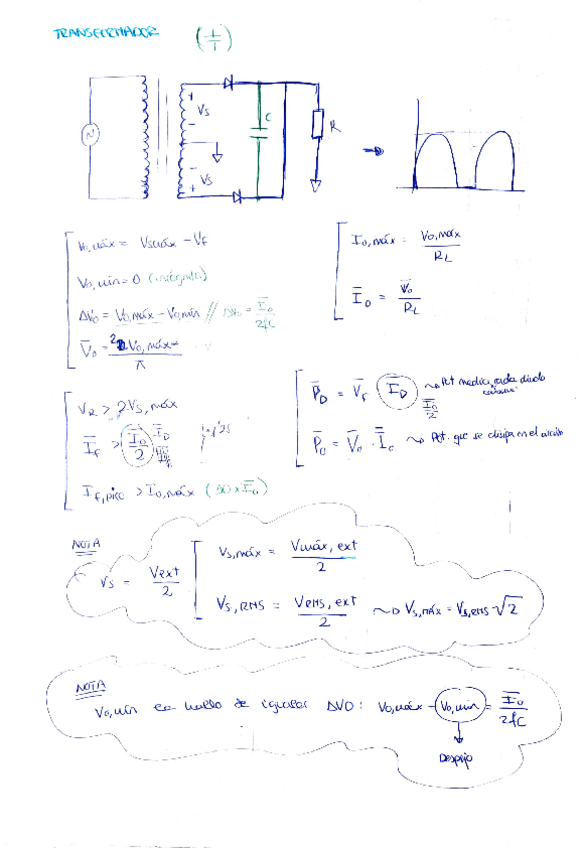 TRANSFORMADOR
Vs
C
R
Vs
Vo,máx = Vsmáx - VF
Vo,mín = 0
ΔVo = Vo,máx - Vo,mín // ΔVo = Īo / 2fC
V̄o = 2 Vo,máx / π
Io,máx = Vo,máx / RL
ĪD = V̄o / RL
VR > 2Vs,máx
Īf > Īo / 2
If,pico > Io,máx (50 x Īo)
P̄D = V̄F ĪD ~> Pot media cada diodo
Īo / 2
P̄o = V̄o · Īo ~> Pot. que se disipa en el circuito
NOTA
Vs = Vext / 2
Vs,máx = Vmáx,ext / 2
Vs,RMS = VRMS,ext / 2 ~> Vs,máx = Vs,RMS √2
NOTA
Vo,mín de igualar ΔVO: Vo,máx - Vo,mín = Īo / 2fC
Despejo